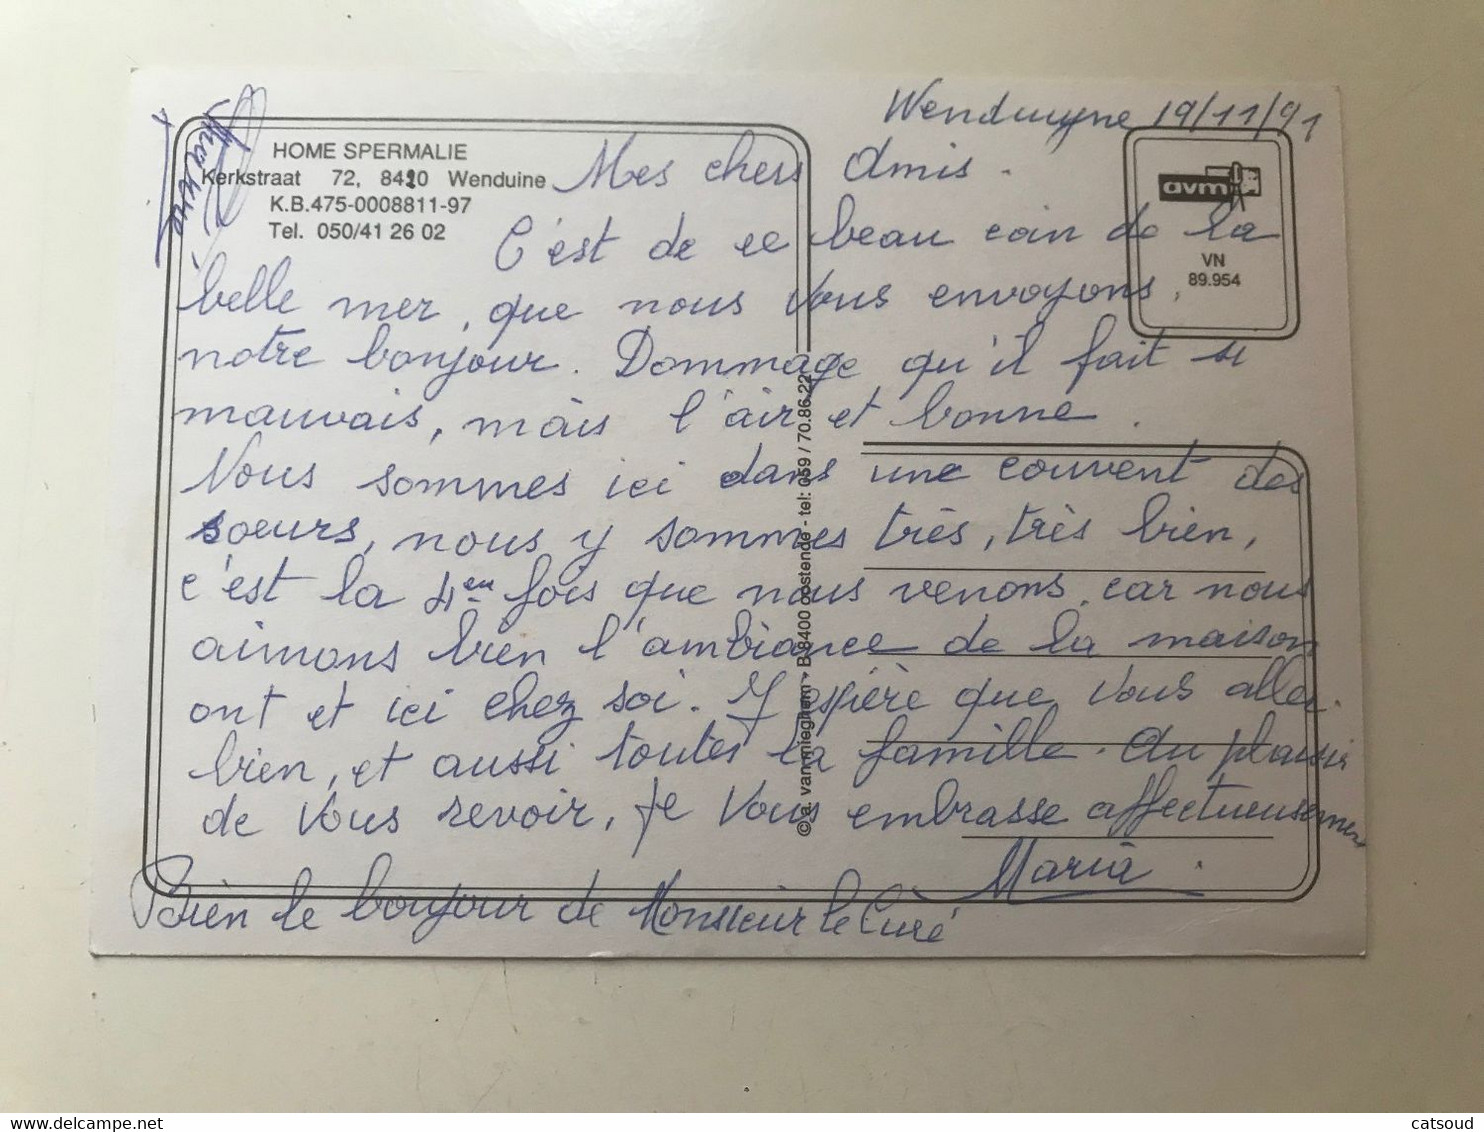 Wenduyne 19/11/91
HOME SPERMALIE
Kerkstraat 72, 8420 Wenduine
K.B.475-0008811-97
Tel. 050/41 26 02
avm
VN
89.954
Mes chers Amis.
C'est de ce beau coin de la
belle mer, que nous vous envoyons,
notre bonjour. Dommage qu'il fait si
mauvais, mais l'air et bonne.
Nous sommes ici dans une couvent des
soeurs, nous y sommes très, très bien,
c'est la 4em fois que nous venons, car nous
aimons bien l'ambiance de la maison
ont et ici chez soi. J'espère que vous allez
bien, et aussi toutes la famille. Au plaisir
de vous revoir, je vous embrasse affectueusement
Maria.
Bien le bonjour de Monsieur le Curé
© a. van mieghem - B 8400 oostende - tel: 059 / 70.86.22
delcampe.net
catsoud